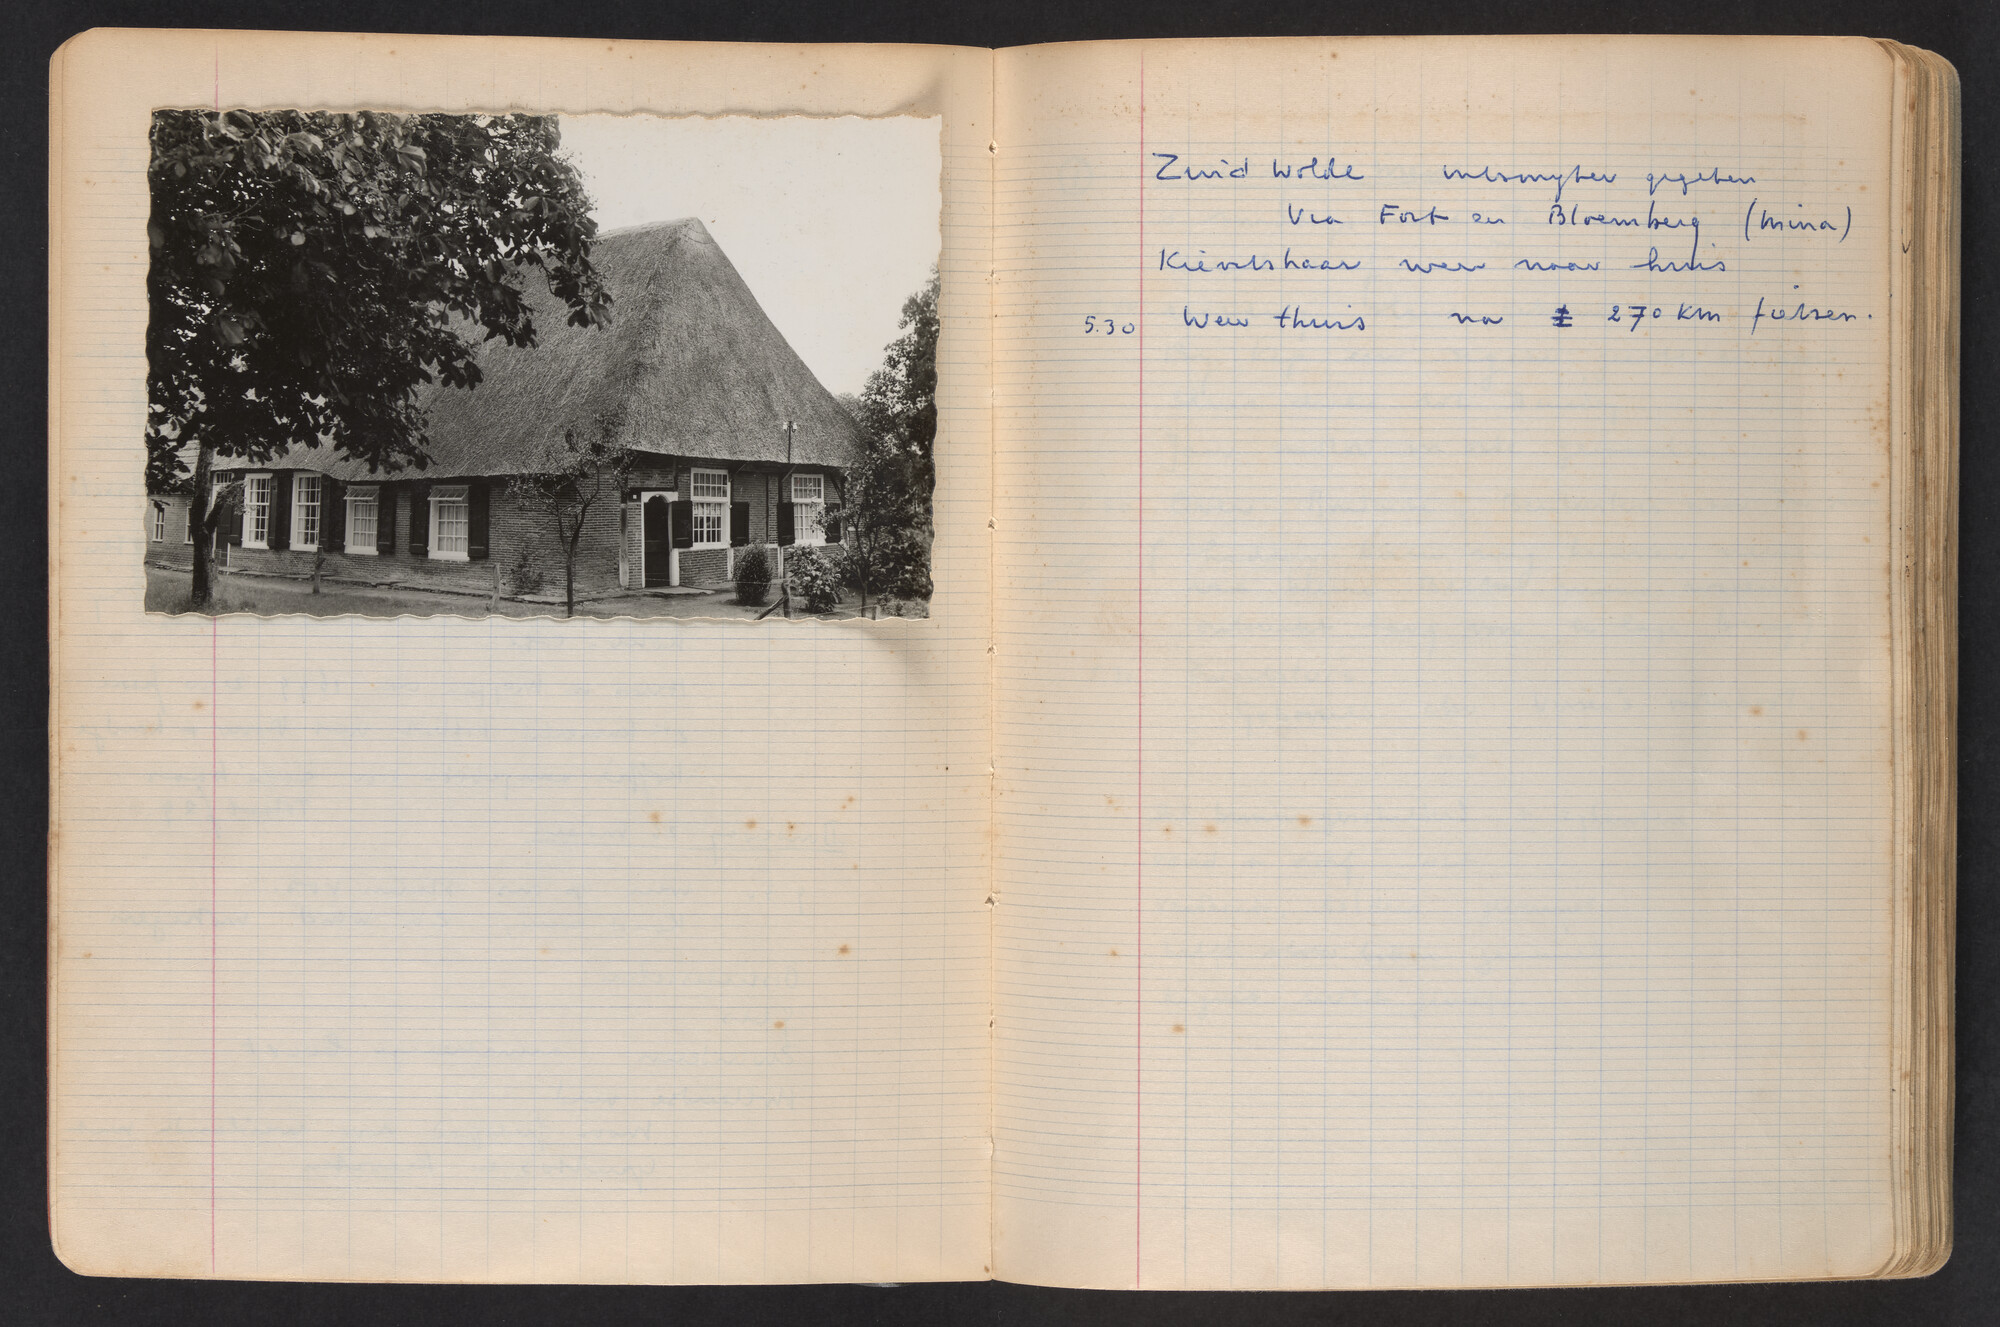 Zuid Wolde uitsmijter gegeten
Via Fort en Bloemberg (Mina)
Kievitshaar weer naar huis
5.30 Weer thuis na ± 270 km fietsen.